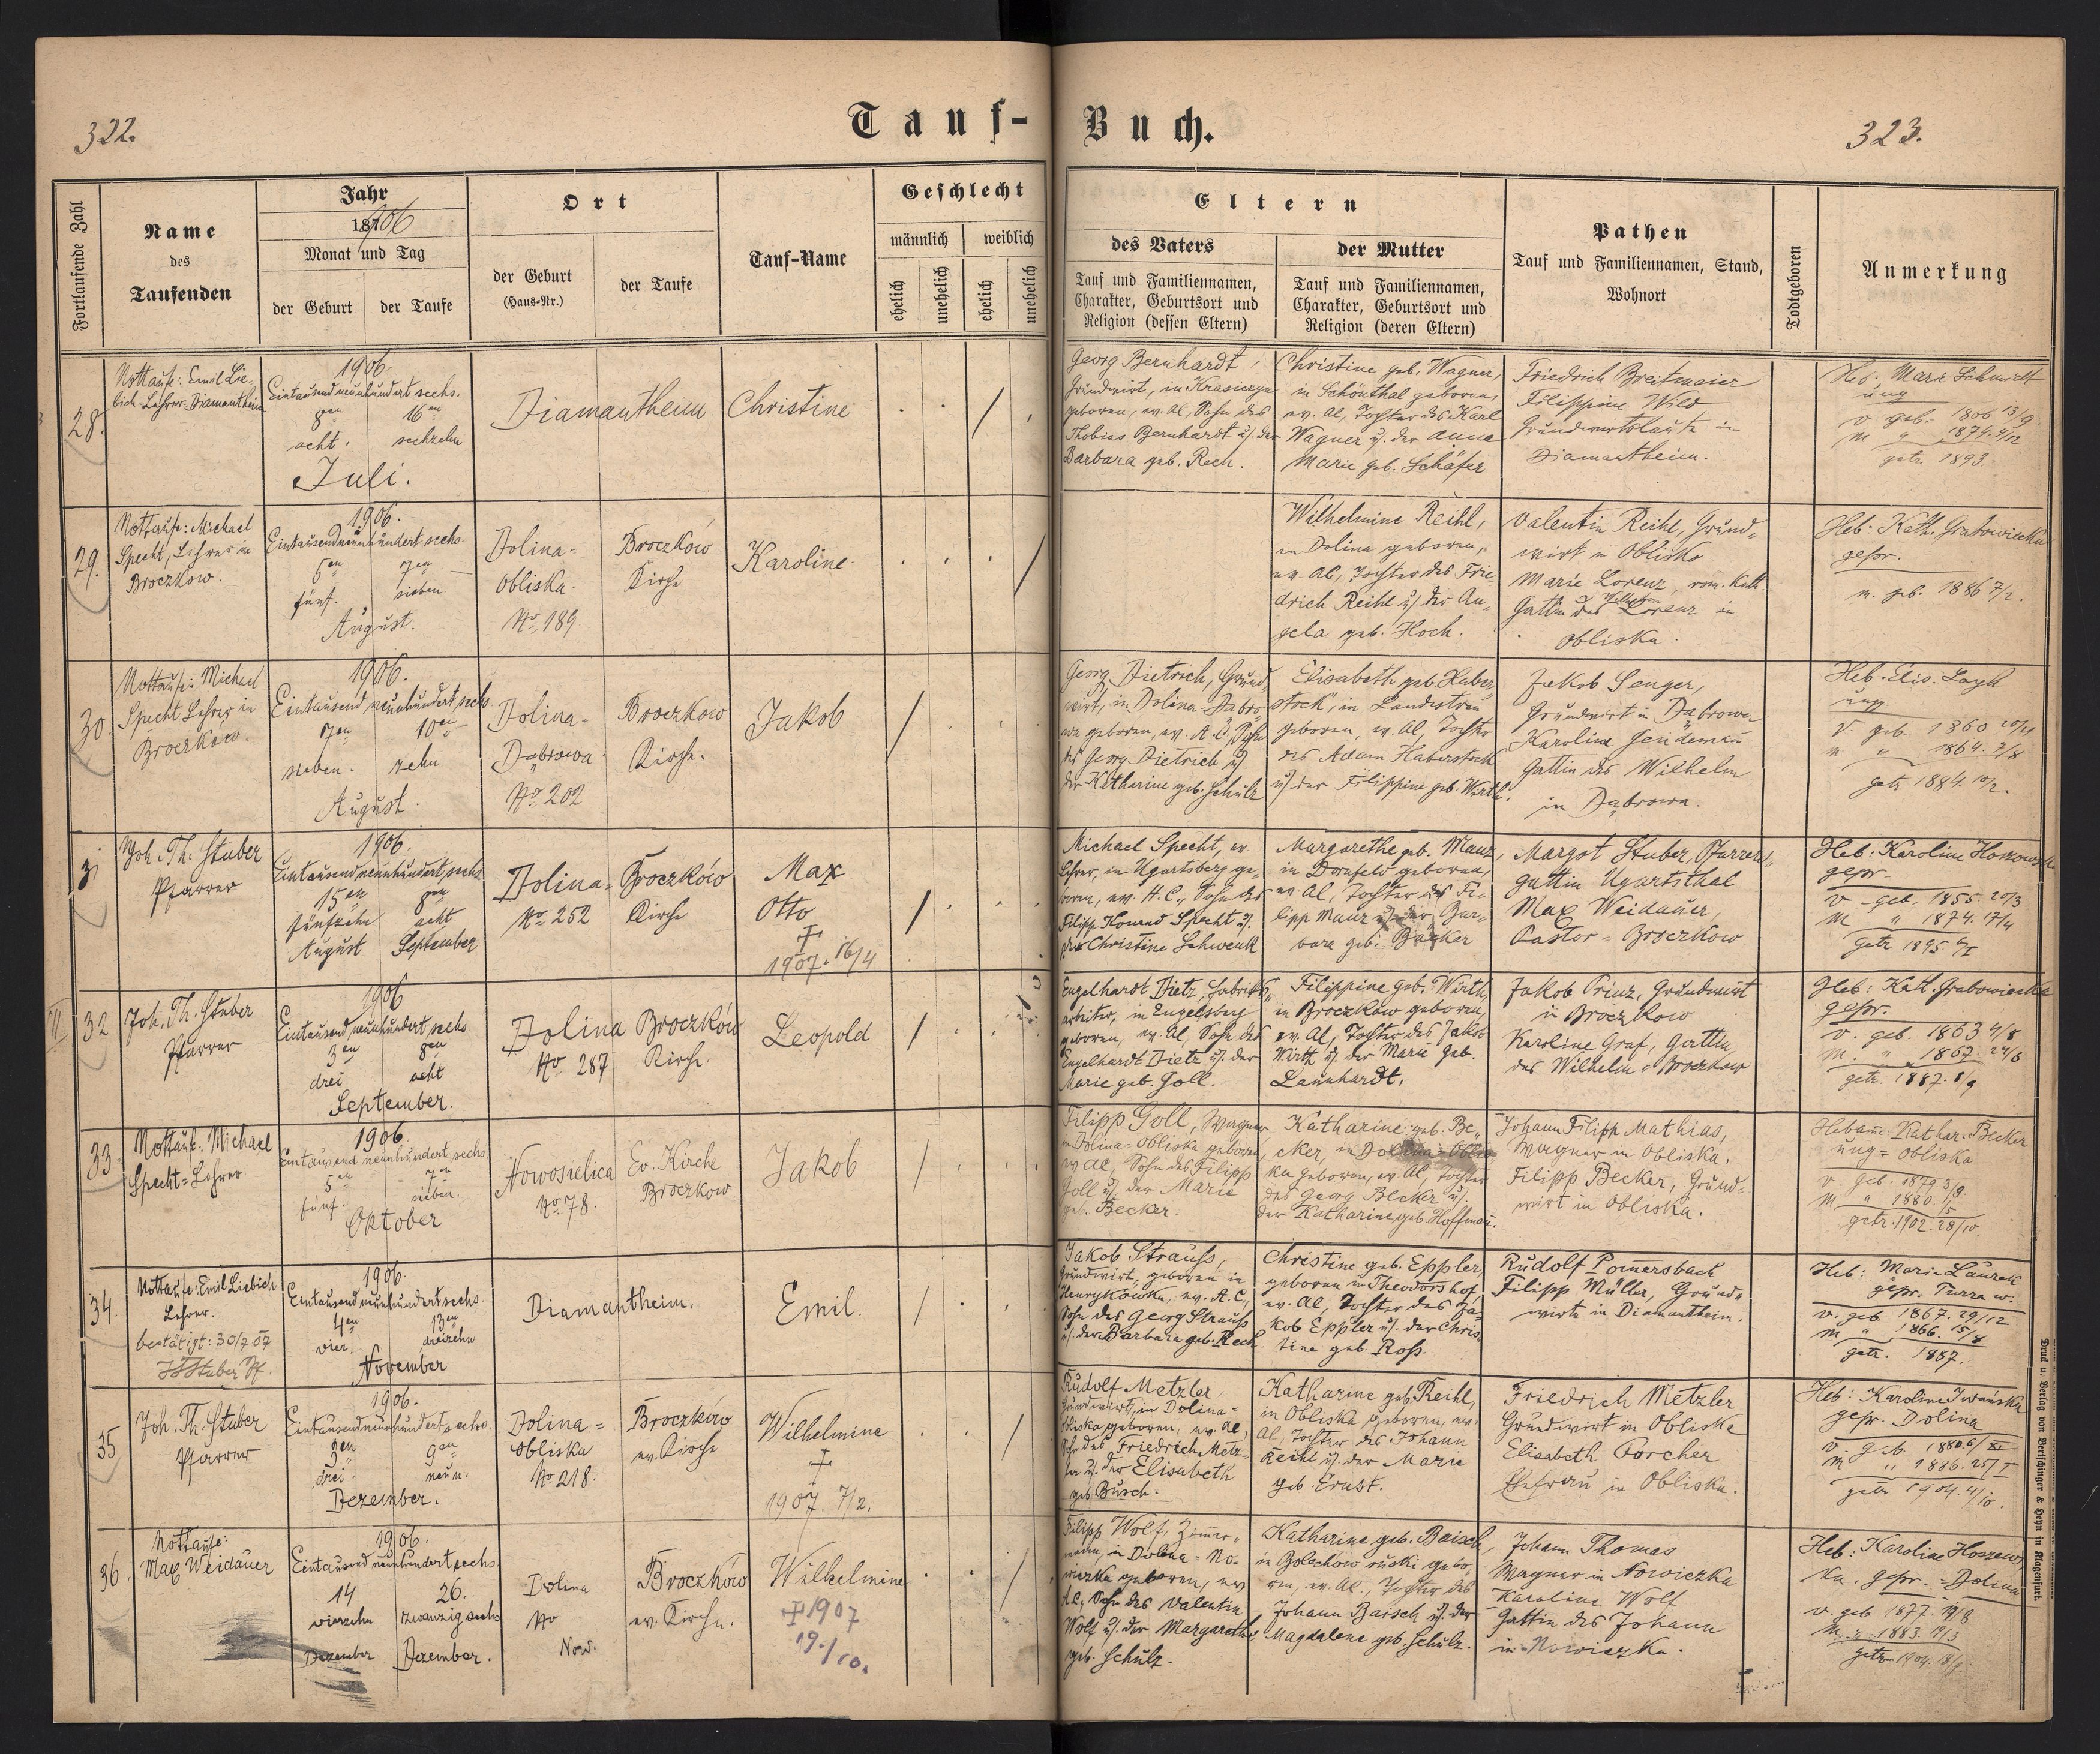 322.
Tauf-Buch.
323.
Fortlaufende Zahl
Name
des
Taufenden
Jahr
1871906
Monat und Tag
der Geburt
der Taufe
Ort
der Geburt
(Haus-Nr.)
der Taufe
Tauf-Name
Geschlecht
männlich
weiblich
ehelich
unehelich
ehelich
unehelich
Eltern
des Vaters
Tauf und Familiennamen,
Charakter, Geburtsort und
Religion (dessen Eltern)
der Mutter
Tauf und Familiennamen,
Charakter, Geburtsort und
Religion (deren Eltern)
Pathen
Tauf und Familiennamen, Stand,
Wohnort
Todtgeboren
Anmerkung
28.
Nottaufe: Emil Lie-
bich-Lehrer-Diamantheim
1906.
Eintausendneunhundert sechs.
8en
16en
acht.
sechzehn
Juli.
Diamantheim
Christine
Georg Bernhardt,
Grundwirt, in
geboren, ev. Al, Sohn des
Thobias Bernhardt u. der
Barbara geb. Rech.
Christine geb. Wagner,
in Schönthal geboren,
ev. Al, Tochter des Karl
Wagner u. der Anna
Marie geb. Schäfer
Friedrich Breitmeier
Filippine Wild
Grundwirtsleute in
Diamantheim.
Heb: Marie Schmidt
ung
v. geb. 13/9
m " 1874. 4/12
getr. 1893.
29.
Nottaufe: Michael
Specht, Lehrer in
Broczkow.
1906.
Eintausendneunhundert sechs.
5en
7en
fünf.
sieben
August.
Dolina-
Obliska.
No 189
Broczkow
Kirche
Karoline
Wilhelmine Reihl,
in Dolina geboren,
ev. Al, Tochter des Frie-
drich Reihl u. der An-
gela geb. Hoch.
Valentin Reihl, Grund-
wirt in Obliska
Marie Lorenz, rom. Kath.
Gattin des Wilhelm Lorenz in
Obliska.
Heb: Kath. Grabowiecka
gepr.
m. geb. 1886 7/2.
30.
Nottaufe: Michael
Specht Lehrer in
Broczkow.
1906.
Eintausend neunhundert sechs
7en
10en
sieben.
zehn
August.
Dolina-
Dąbrowa
No 202
Broczkow
Kirche.
Jakob
Georg Dietrich, Grund-
wirt, in Dolina-Dabro-
wa geboren, ev. A. C., Sohn
des Georg Dietrich u.
der Katharine geb. Schulz
Elisabeth geb. Haber-
stock, in Landestreu
geboren, ev. Al, Tochter
des Adam Haberstock
u. der Filippine geb. Wirth.
Jakob Senger,
Grundwirt in Dąbrowa
Karoline
Gattin des Wilhelm
in Dąbrowa.
Heb. Elis.
ung.
v. geb. 1860 20/4
m " 1864. 7/8
getr 1884. 10/2.
31
Joh. Th. Stuber
Pfarrer
1906.
Eintausend neunhundert sechs
15en
8en
fünfzehn
acht
August
September
Dolina-
No 252
Broczków
Kirche
Max
Otto
†
1907. 16/4
Michael Specht, ev.
Lehrer, in Ugartsberg ge-
boren, ev. H. C., Sohn des
Filipp Konrad Specht u.
der Christine Schwenk
Margarethe geb. Manz,
in Dornfeld geboren,
ev. Al, Tochter des Fi-
lipp Manz u. der Bar-
bara geb. Bäcker
Margot Stuber, Pfarrers-
gattin Ugartsthal
Max Weidauer,
Pastor - Broczkow
Heb: Karoline
gepr.
v. geb. 1855 20/3
m " 1874. 17/4
getr 1895
32
Joh. Th. Stuber
Pfarrer
1906
Eintausend neunhundert sechs
3en
8en
drei
acht
September.
Dolina
No 287
Broczków
Kirche.
Leopold
Engelhardt Dietz, Fabriks-
arbeiter, in Engelsberg
geboren, ev. Al, Sohn des
Engelhardt Dietz u. der
Marie geb. Goll.
Filippine geb. Wirth,
in Broczkow geboren,
ev. Al, Tochter des Jakob
Wirth u. der Marie geb.
Launhardt.
Jakob Prinz, Grundwirt
in Broczkow
Karoline Graf, Gattin
des Wilhelm - Broczkow
Heb: Kath. Grabowiecka
gepr.
v. geb. 1863 4/8
m. " 1867. 24/6
getr. 1887. 8/9
33
Nottaufe: Michael
Specht-Lehrer.
1906.
Eintausend neunhundert sechs.
5en
7en
fünf.
sieben.
Oktober
Nowosielica
No 78.
Ev. Kirche
Broczkow
Jakob
Filipp Goll, Wagner
in Dolina-Obliska geboren,
ev. Al, Sohn des Filipp
Goll u. der Marie
geb. Becker.
Katharine geb. Be-
cker, in Dolina-Oblis-
ka geboren, ev. Al, Tochter
des Georg Becker u.
der Katharine geb Hoffman.
Johann Filipp Mathias,
Wagner in Obliska.
Filipp Becker, Grund-
wirt in Obliska.
Hebam: Kathar. Becker
ung - Obliska
v. geb. 1879 3/9.
m " 1880. 1/5
getr. 1902. 28/10.
34.
Nottaufe: Emil Liebich
Lehrer.
bestätigt: 30/7 07
JThStuber Pf.
1906.
Eintausend neunhundert sechs
4en
13en
vier.
dreizehn
November
Diamantheim.
Emil.
Jakob Strauß,
Grundwirt, geboren in
Henrykówka, ev. A. C.,
Sohn des Georg Strauß
u. der Barbara geb. Rech.
Christine geb. Eppler,
geboren in Theodorshof,
ev. Al, Tochter des Ja-
kob Eppler u. der Chris-
tine geb. Roß.
Rudolf Pomersbach
Filipp Müller, Grund-
wirte in Diamantheim.
Heb: Marie Laurek
gepr. Turza w.
v. geb. 1867. 29/12
m " 1866. 15/8
getr. 1887.
35
Joh. Th. Stuber
Pfarrer
1906.
Eintausendneunhundert sechs.
3en
9en
drei.
neun.
Dezember.
Dolina-
Obliska
No 218.
Broczków
ev. Kirche
Wilhelmine
†
1907. 7/2.
Rudolf Metzler
Grundwirt, in Dolina-
Obliska geboren, ev. Al,
Sohn des Friedrich Metz-
ler u. der Elisabeth
geb. Busch.
Katharine geb. Reihl,
in Obliska geboren, ev.
Al, Tochter des Johann
Reihl u. der Marie
geb. Ernst.
Friedrich Metzler
Grundwirt in Obliska
Elisabeth Porcher
Ehefrau in Obliska.
Heb: Karoline Iwańska
gepr. Dolina
v. geb. 1880. 6/XI
m " 1886. 25/I
getr 1904. 4/10.
36.
Nottaufe:
Max Weidauer
1906.
Eintausend neunhundert sechs
14
26.
vierzehn
zwanzig sechs
Dezember
Dezember.
Dolina
No
Now.
Broczków
ev. Kirche.
Wilhelmine
† 1907
19./10.
Filipp Wolf, Zimmer-
mann, in Dolina-No-
wiczka geboren, ev.
Al, Sohn des Valentin
Wolf u. der Margarethe
geb. Schulz.
Katharine geb. Baisch,
in Bolechow ruski gebo-
ren, ev. Al., Tochter des
Johann Baisch u. der
Magdalena geb. Schulz.
Johann Thomas
Wagner in Nowiczka
Karoline Wolf
Gattin des Johann
in Nowiczka.
Heb: Karoline Hoszow-
ka, gepr. - Dolina
v. geb 1877. 19/8
m " 1883. 19/3
getr. 1904.
Druck u. Verlag von Bertschinger & Heyn in Klagenfurt.